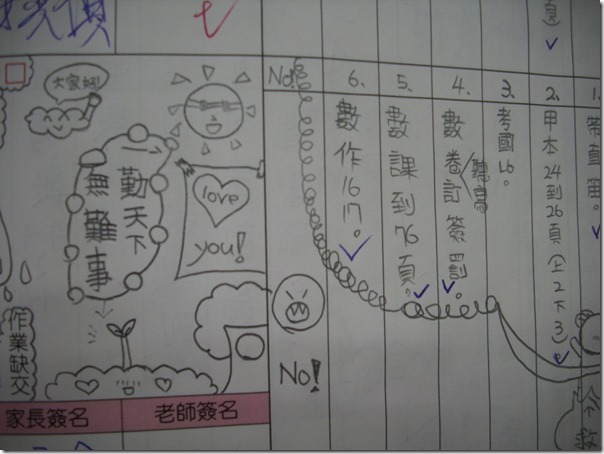 1. 帶直笛。
2. 甲本24到26頁(上2下3)
3. 考國L6。
4. 數卷訂簽罰。
聽寫
5. 數課到76頁。
6. 數作16 17。
No.
大家好!
一勤天下
無難事
love
you!
No!
作業缺交
家長簽名
老師簽名